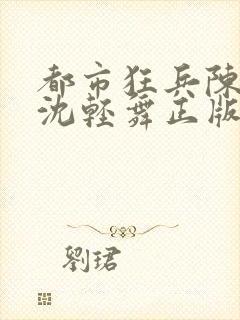 都市狂兵陳
沈輕舞正版
劉珺